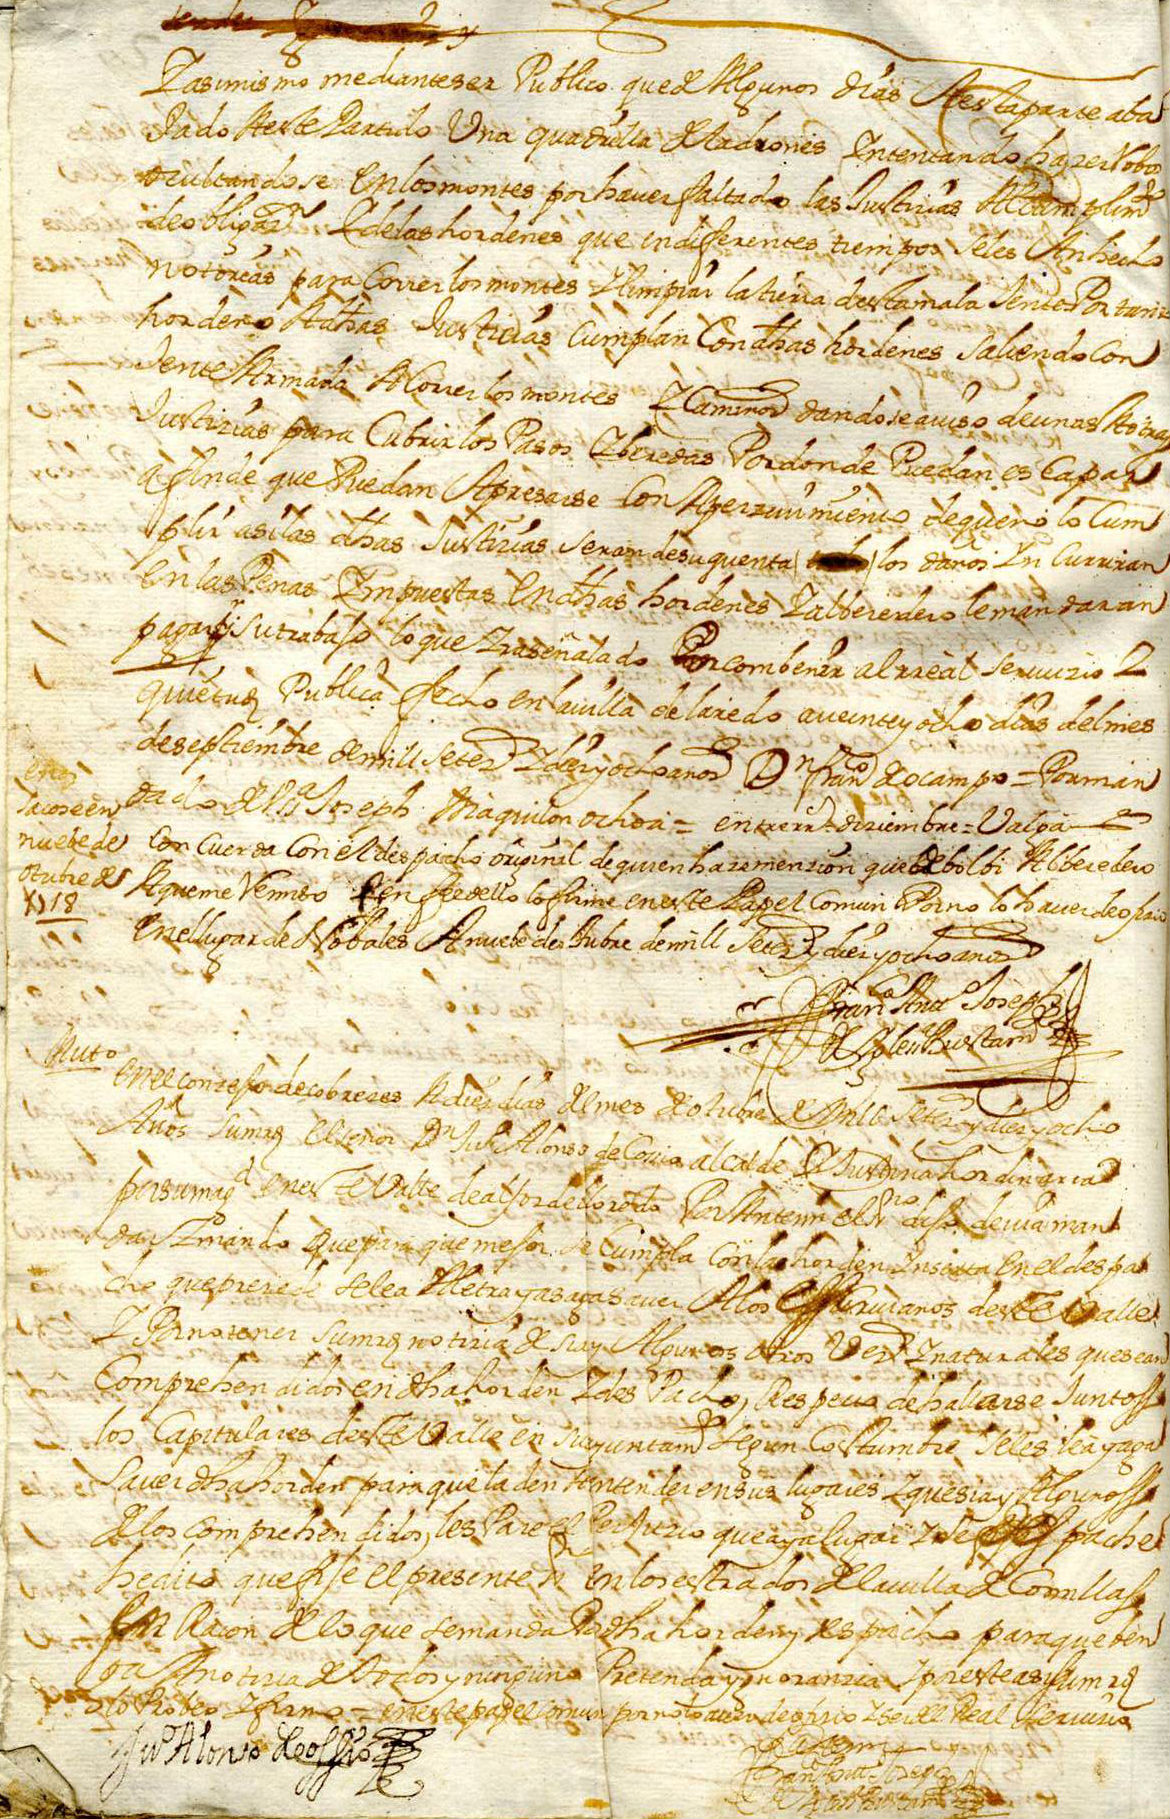 Y asimismo mediante ser Publico que de Algunos dias A esta parte aba
Jado A este Partido Una quadrilla de ladrones Yntentando hazer Robos
ocultandose en los montes por haver faltado las Justizias Al Cumplimto
de obligazn Y de las hordenes que en diferentes tiempos seles An hecho
notorias para Correr los montes Y limpiar la tierra desta mala Jente Por tanto
hordeno A dhas Justizias Cumplan Con dhas hordenes saliendo Con
Jente Armada A Correr los montes Y Caminos dandose aviso de unas A otras
Justizias para Cubrir los Pasos Y beredas Por donde Puedan escapar
a fin de que Puedan Apresarse Con Aperzivimiento de que no lo Cum
plir asi las dhas Justizias seran de su quenta los daños Yn Curriran
en las Penas Ympuestas en dhas hordenes Y al beredero le mandaran
pagar su trabajo lo que Yra señalado Por combenir al rreal servizio Y
quietud Publica fecho en la villa de laredo a veinte y ocho dias del mes
de septiembre de mill setezs Y diez y ocho años Dn franco de ocampo = Por man
dado de SSa Joseph Maquilon ochoa = entrerrs diziembre = Valga
Concuerda Con el despacho orijinal de quien haze menzion que debolbi Al beredero
A que me Remito Y en fee dello lo firme en este Papel Comun Por no lo haver de ofizio
en el lugar de Nobales A nuebe de otubre de mill setezs y diez y ocho años
nuebe de
otubre de
1718
Franco Anto Joseph
de Yglesia Bustamte
Auto
En el conzejo de cobrezes A diez dias del mes de otubre de Mill setezs y diez y ocho
Años su mrd el señor Dn Jun Alonso de Cossio alcalde Y Justizia hordinaria
por su magd en este Valle de alfoz de lloredo Por Ante mi el ssno dijo devia man
dar Y mando que para que mejor se Cumpla Con la horden Ynserta en el despa
cho que prezede se lea A la letra y aga saver A los escrivanos deste Valle
Y Por no tener su mrd notizia de si ay Algunos otros Vezs Y naturales que sean
Comprehendidos en dha horden Y des Pacho, Respecto de hallarse Juntos
los Capitulares deste Valle en su ayuntamto segun Costumbre seles lea y aga
saver dha horden para que la den A entender en sus lugares Y que si ay Algunos
de los comprehendidos, les Pare el Perjuizio que aya lugar Y se despache
hedito que fije el presente ssno en los estrados de la villa de Comillas
en Razon de lo que se manda Por dha horden y despacho para que ben
ga A notizia de todos y ninguno Pretenda ygnoranzia Y por este asi su mrd
lo Probeo Y firmo = en este papel Comun por no lo aver de ofizio Y ser del Real serbizio
Jun Alonso de Cossio
Ante mi
Franco Anto Joseph
de Yglesia Bustamte